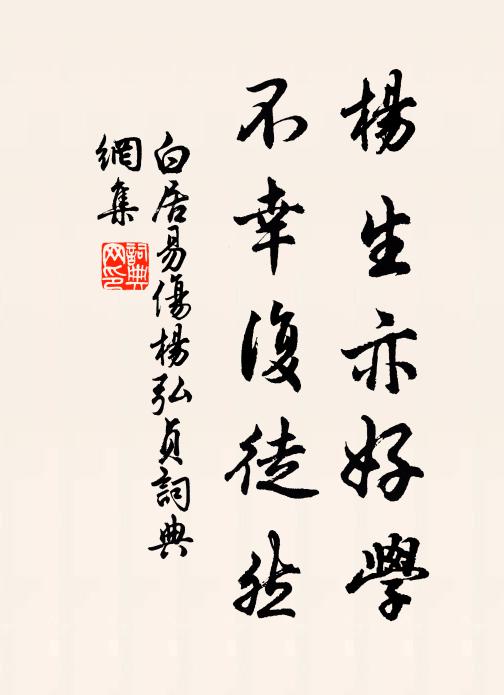 楊生亦好學
不幸復徒然
白居易傷楊弘貞詞典
網集
詞典网印